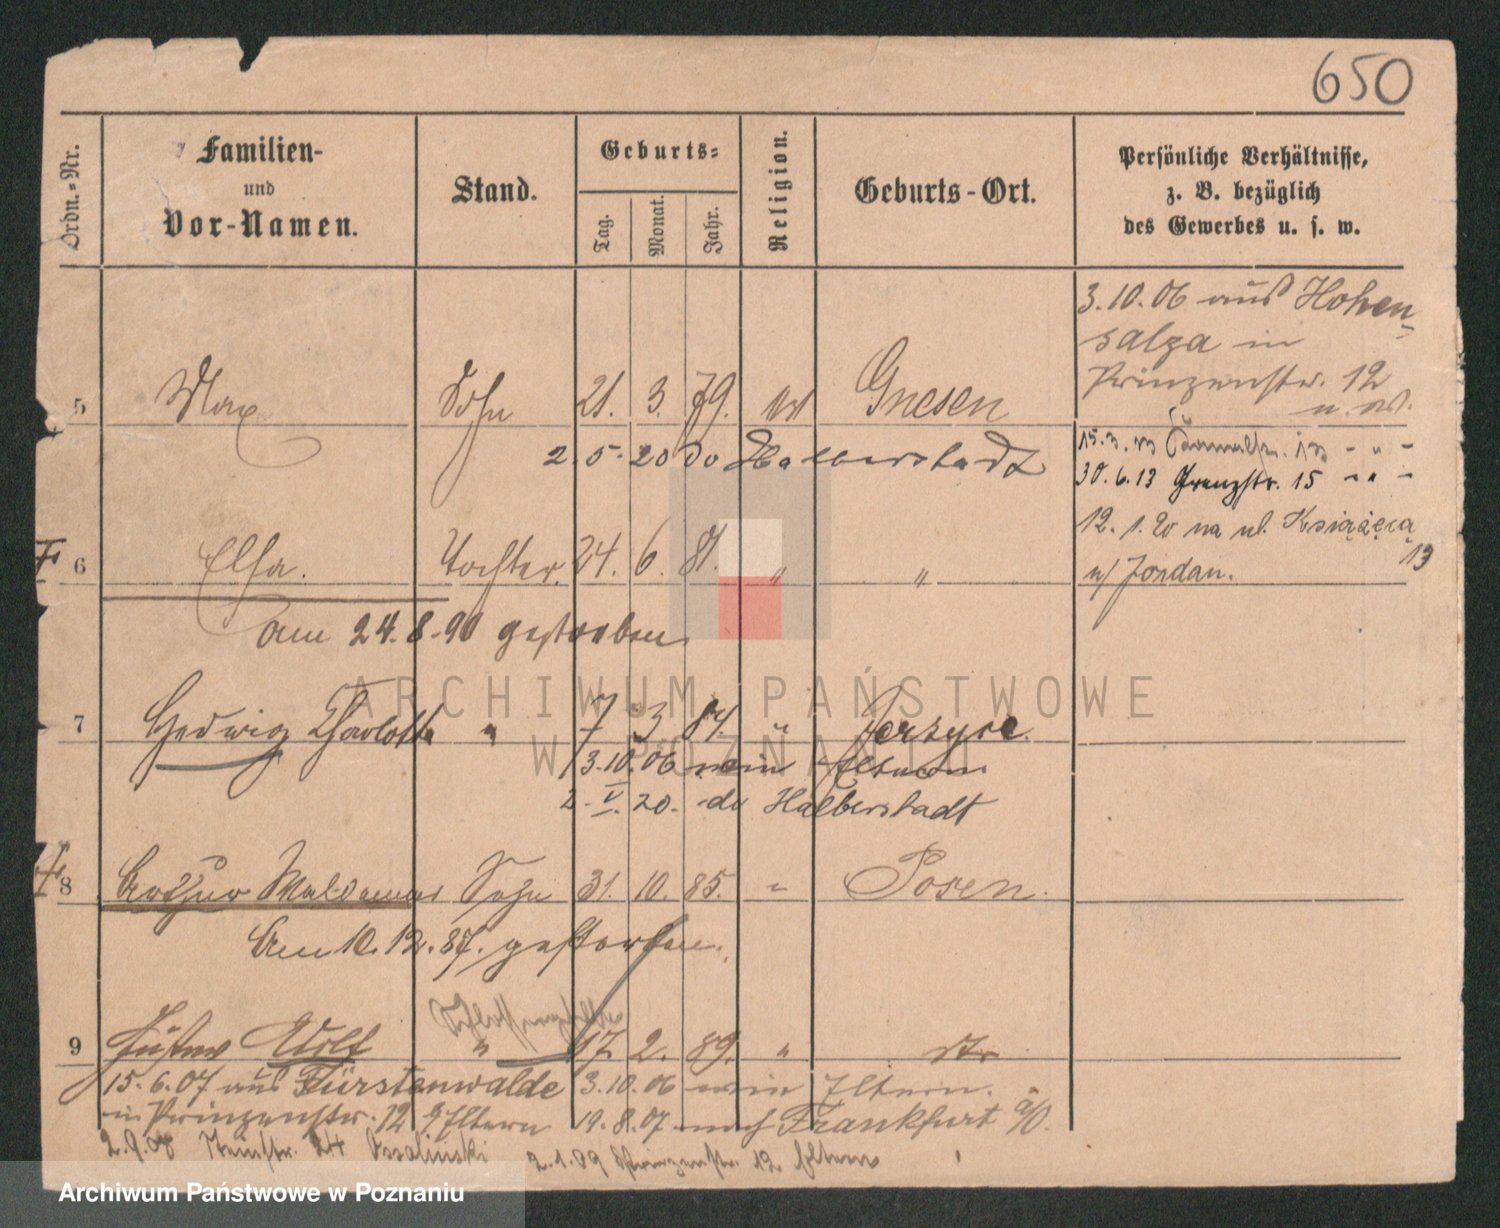 650
Ordn.-Nr.
Familien-
und
Vor-Namen.
Stand.
Geburts-
Tag.
Monat.
Jahr.
Religion.
Geburts-Ort.
Persönliche Verhältnisse,
z. B. bezüglich
des Gewerbes u. s. w.
3.10.06 aus Hohen-
salza in
Prinzenstr. 12
5 Max Sohn 21. 3. 79. Gnesen
2. 5. 20 do Halberstadt
15.3.13
30.6.13 Grenzstr. 15 - " -
12. 1. 20 na ul. Książęcą
13
6 Elsa. Tochter. 24. 6. 81. " "
w/ Jordan.
am 24.8.90 gestorben
7 Hedwig Charlotte " 7 3 84. " Jerzyce.
3.10.06 wie Eltern
2. V. 20. do Halberstadt
8 Arthur Waldemar Sohn 31. 10. 85. " Posen.
Am 10.12.87. gestorben.
9 Gustav Adolf " 17. 2. 89. "
15.6.07 aus Fürstenwalde 3.10.06 wie Eltern.
in Prinzenstr. 12 Eltern 19.8.07 nach Frankfurt a/O.
2.9.08 24 Ossalinski 2.1.09 Prinzenstr. 12 Eltern
ARCHIWUM PAŃSTWOWE
W POZNANIU
Archiwum Państwowe w Poznaniu